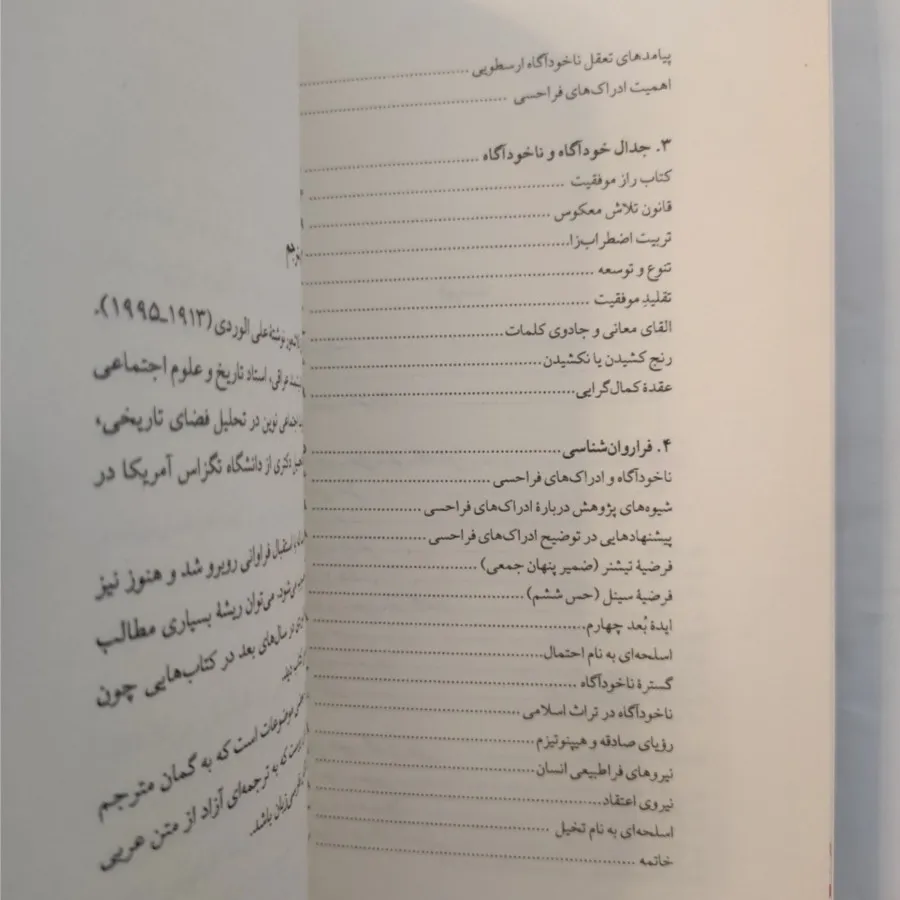 پیامدهای تعقل ناخودآگاه ارسطویی
اهمیت ادراک‌های فراحسی
۳. جدال خودآگاه و ناخودآگاه
کتاب راز موفقیت
قانون تلاش معکوس
تربیت اضطراب‌زا
تنوع و توسعه
تقلیدِ موفقیت
القای معانی و جادوی کلمات
رنج کشیدن یا نکشیدن
عقدهٔ کمال‌گرایی
۴. فراروان‌شناسی
ناخودآگاه و ادراک‌های فراحسی
شیوه‌های پژوهش دربارهٔ ادراک‌های فراحسی
پیشنهادهایی در توضیح ادراک‌های فراحسی
فرضیهٔ تیشنر (ضمیر پنهان جمعی)
فرضیهٔ سینل (حس ششم)
ایدهٔ بُعد چهارم
اسلحه‌ای به نام احتمال
گسترهٔ ناخودآگاه
ناخودآگاه در تراث اسلامی
رؤیای صادقه و هیپنوتیزم
نیروهای فراطبیعی انسان
نیروی اعتقاد
اسلحه‌ای به نام تخیل
خاتمه
نوشتهٔ علی الوردی (۱۹۱۳ـ۱۹۹۵).
عراقی، استاد تاریخ و علوم اجتماعی
نوین در تحلیل فضای تاریخی،
دکتری از دانشگاه تگزاس آمریکا در
استقبال فراوانی روبرو شد و هنوز نیز
می‌شود. می‌توان ریشهٔ بسیاری مطالب
در سال‌های بعد در کتاب‌هایی چون
دید.
موضوعات است که به گمان مترجم
که به ترجمه‌ای آزاد از متن عربی
زبان باشد.